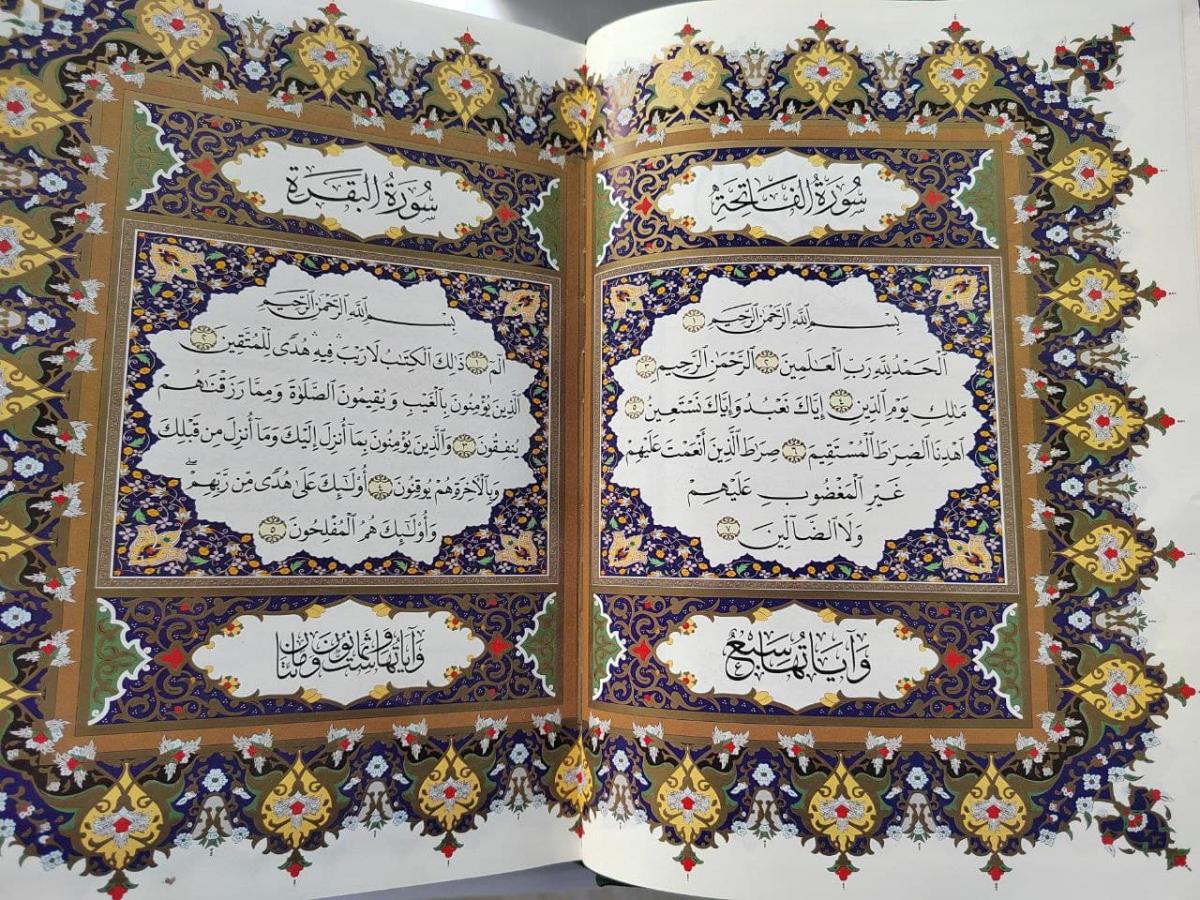 سُورَةُ الفَاتِحَةِ
بِسْمِ اللَّهِ الرَّحْمَٰنِ الرَّحِيمِ ١
الْحَمْدُ لِلَّهِ رَبِّ الْعَالَمِينَ ٢ الرَّحْمَٰنِ الرَّحِيمِ ٣
مَالِكِ يَوْمِ الدِّينِ ٤ إِيَّاكَ نَعْبُدُ وَإِيَّاكَ نَسْتَعِينُ ٥
اهْدِنَا الصِّرَاطَ الْمُسْتَقِيمَ ٦ صِرَاطَ الَّذِينَ أَنْعَمْتَ عَلَيْهِمْ
غَيْرِ الْمَغْضُوبِ عَلَيْهِمْ
وَلَا الضَّالِّينَ ٧
وَآيَاتُهَا سَبْعٌ
سُورَةُ البَقَرَةِ
بِسْمِ اللَّهِ الرَّحْمَٰنِ الرَّحِيمِ
الٓمٓ ١ ذَٰلِكَ الْكِتَابُ لَا رَيْبَ ۛ فِيهِ هُدًى لِلْمُتَّقِينَ ٢
الَّذِينَ يُؤْمِنُونَ بِالْغَيْبِ وَيُقِيمُونَ الصَّلَاةَ وَمِمَّا رَزَقْنَاهُمْ
يُنْفِقُونَ ٣ وَالَّذِينَ يُؤْمِنُونَ بِمَا أُنْزِلَ إِلَيْكَ وَمَا أُنْزِلَ مِنْ قَبْلِكَ
وَبِالْآخِرَةِ هُمْ يُوقِنُونَ ٤ أُولَٰئِكَ عَلَىٰ هُدًى مِنْ رَبِّهِمْ ۖ
وَأُولَٰئِكَ هُمُ الْمُفْلِحُونَ ٥
وَآيَاتُهَا سِتٌّ وَثَمَانُونَ وَمِائَتَانِ